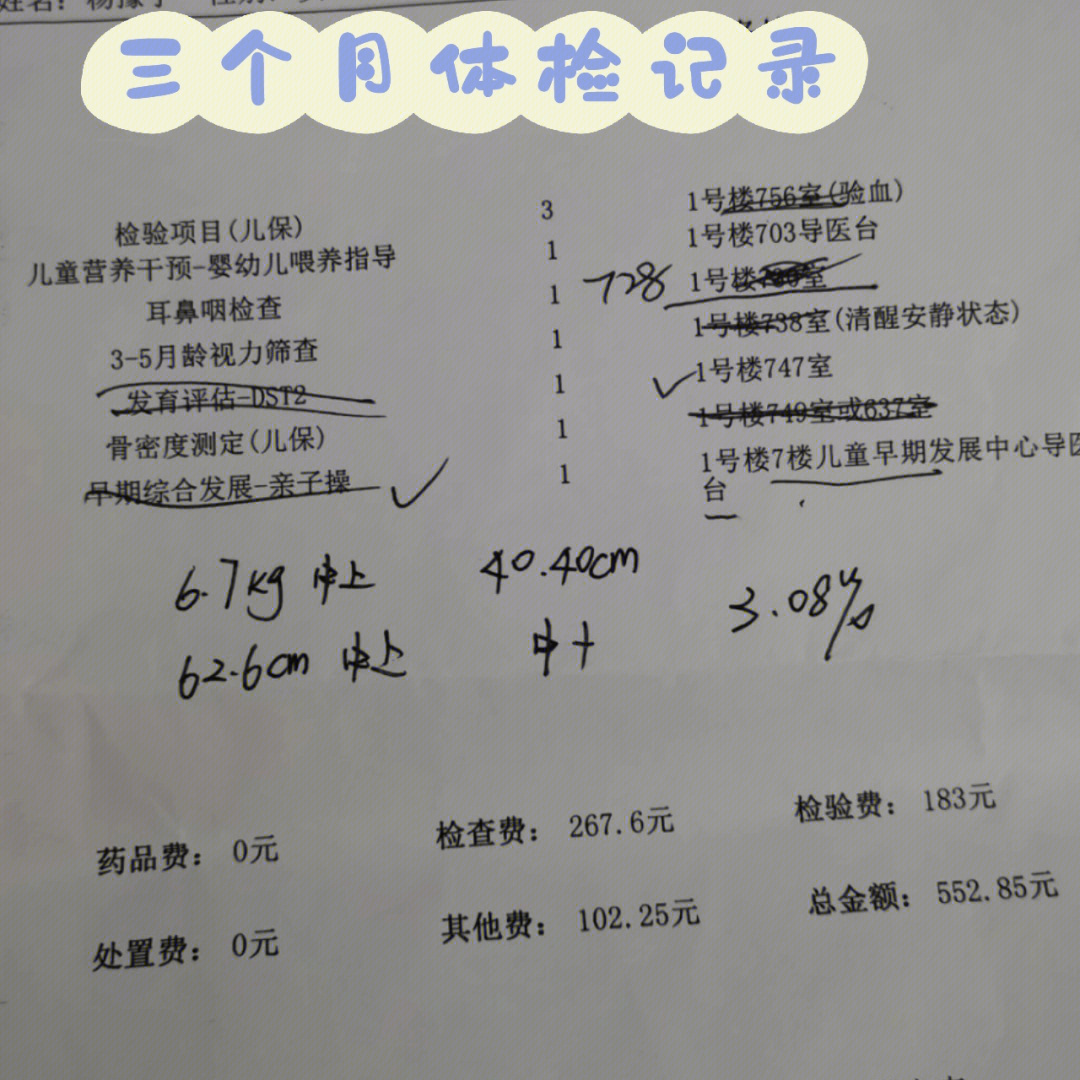 三个月体检记录
检验项目(儿保) 3 1号楼756室(验血)
儿童营养干预-婴幼儿喂养指导 1 1号楼703导医台
耳鼻咽检查 1 728 1号楼
3-5月龄视力筛查 1 1号楼738室(清醒安静状态)
发育评估-DST2 1 1号楼747室
骨密度测定(儿保) 1 1号楼749室或637室
早期综合发展-亲子操 1 1号楼7楼儿童早期发展中心导医
台
6.7kg 中上 40.40cm 3.08%
62.6cm 中上 中+
药品费： 0元 检查费： 267.6元 检验费： 183元
处置费： 0元 其他费： 102.25元 总金额： 552.85元